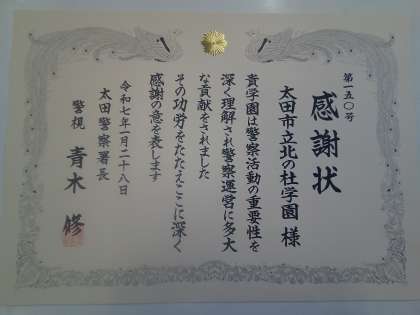 第一五〇号
感謝状
太田市立北の杜学園 様
貴学園は警察活動の重要性を
深く理解され警察運営に多大
な貢献をされました
その功労をたたえここに深く
感謝の意を表します
令和七年一月二十八日
太田警察署長
警視 青木 修